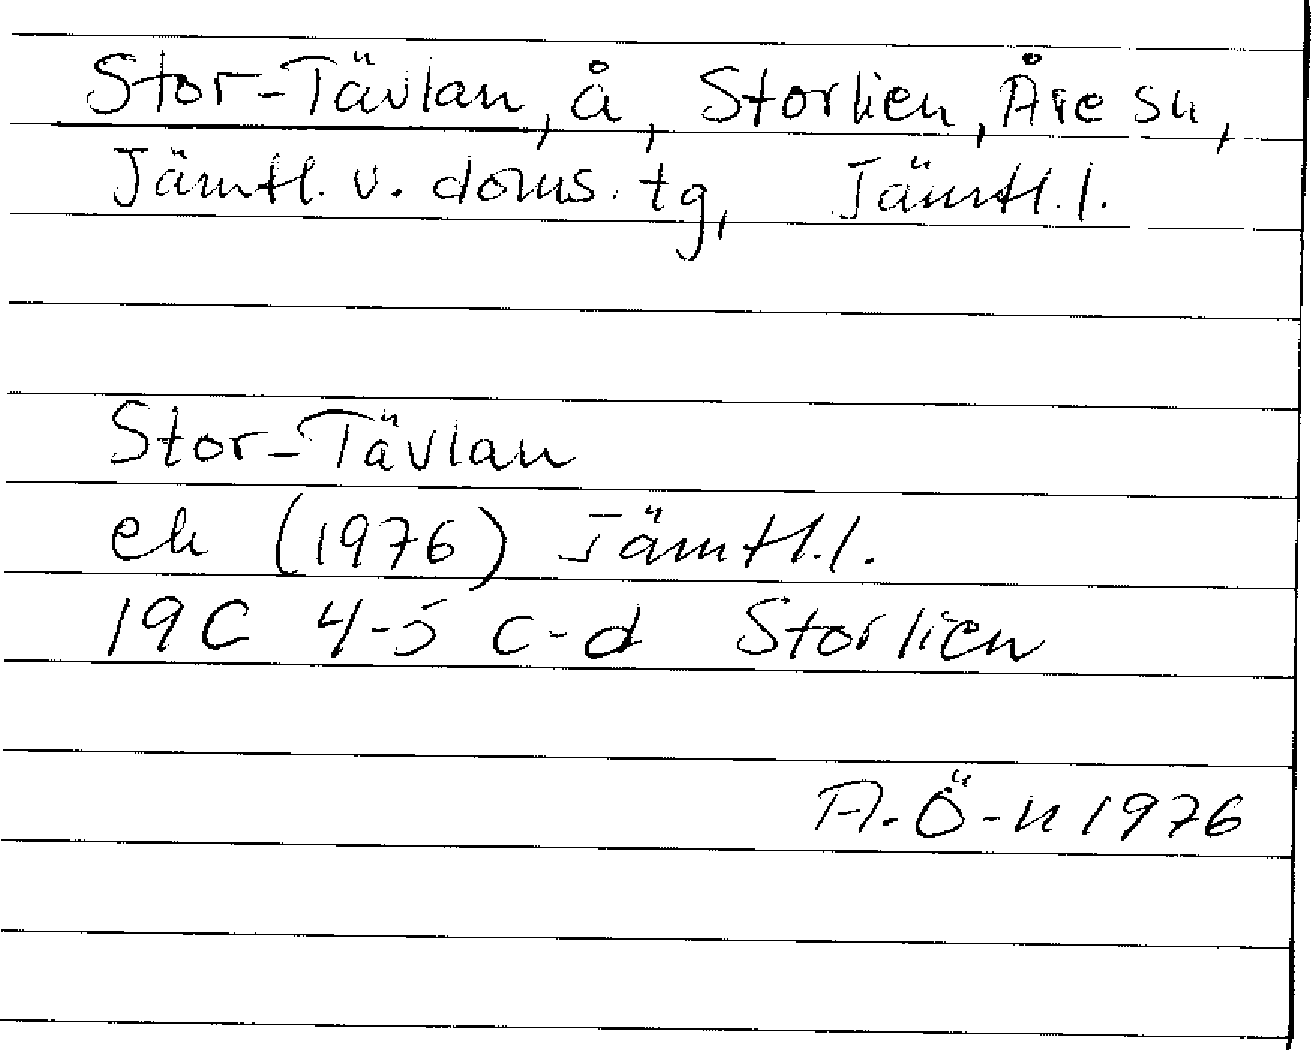 Stor-Tävlan, å, Storlien, Åre sn,
Jämtl. v. doms. tg, Jämtl. l.
Stor-Tävlan
ek (1976) Jämtl. l.
19C 4-5 c-d Storlien
A. Ö-n 1976